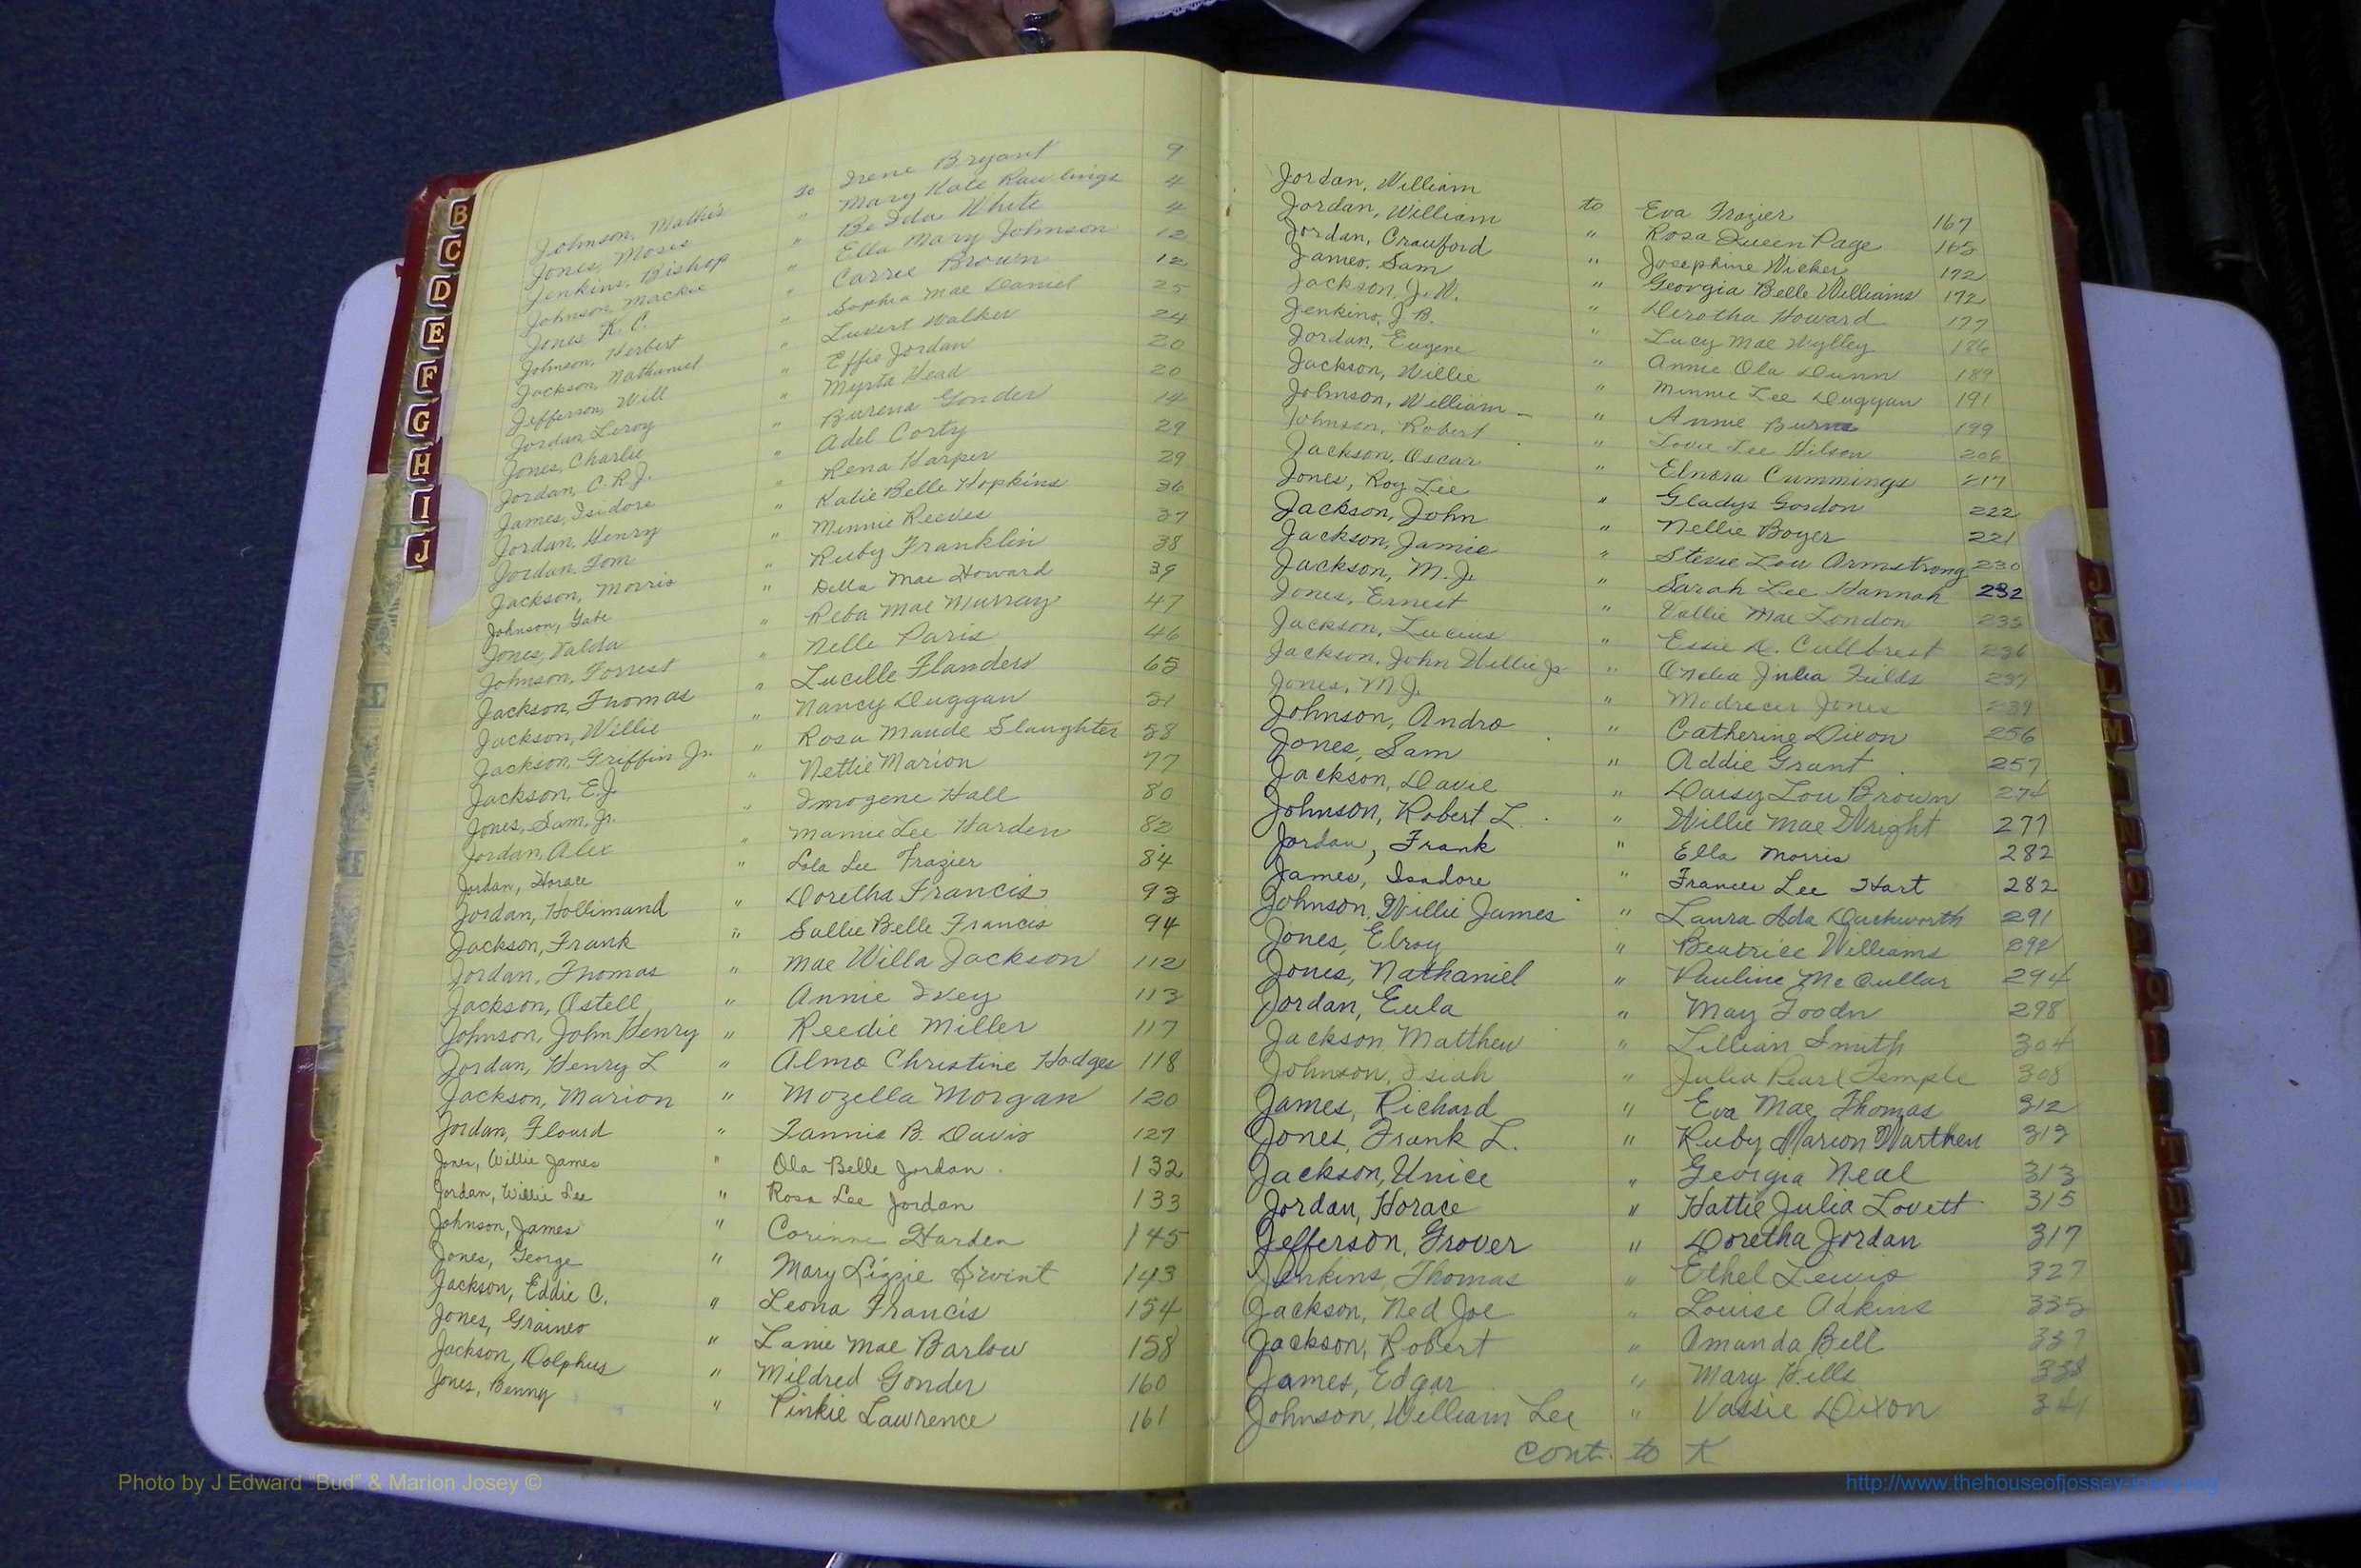 B
C
D
E
F
G
H
I
J
Johnson, Mathis to Irene Bryant 9
Jones, Moses " Mary Kate Rawlings 4
Jenkins, Bishop " Be Ida White 4
Johnson, Mackie " Ella Mary Johnson 12
Jones K. C. " Carrie Brown 12
Johnson, Herbert " Sophia Mae Daniel 25
Jackson, Nathaniel " Luvert Walker 24
Jefferson, Will " Effie Jordan 20
Jordan Leroy " Myrta Head 20
Jones, Charlie " Burena Gonder 14
Jordan, C. R. J. " Adel Corty 29
James, Isidore " Rena Harper 29
Jordan, Henry " Katie Belle Hopkins 36
Jordan, Tom " Minnie Reeves 37
Jackson, Morris " Ruby Franklin 38
Johnson, Gate " Della Mae Howard 39
Jones, Valda " Reba Mae Murray 47
Johnson, Forrest " Nelle Paris 46
Jackson, Thomas " Lucille Flanders 65
Jackson, Willie " Nancy Duggan 51
Jackson, Griffin Jr. " Rosa Maude Slaughter 58
Jackson, E. J. " Nettie Marion 77
Jones, Sam, Jr. " Imogene Hall 80
Jordan, Alex " Mamie Lee Harden 82
Jordan, Horace " Lola Lee Frazier 84
Jordan, Hollimand " Doretha Francis 93
Jackson, Frank " Sallie Belle Francis 94
Jordan, Thomas " Mae Willa Jackson 112
Jackson, Ostell " Annie Ivey 113
Johnson, John Henry " Reedie Miller 117
Jordan, Henry L " Alma Christine Hodges 118
Jackson, Marion " Mozella Morgan 120
Jordan, Flourd " Fannie B. Davis 127
Jones, Willie James " Ola Belle Jordan 132
Jordan, Willie Lee " Rosa Lee Jordan 133
Johnson, James " Corinne Harden 145
Jones, George " Mary Lizzie 143
Jackson, Eddie C. " Leona Francis 154
Jones, Graines " Lanie Mae Barlow 158
Jackson, Dolphus " Mildred Gonder 160
Jones, Benny " Pinkie Lawrence 161
Jordan, William to Eva Frazier 167
Jordan, William " Rosa Queen Page 165
Jordan, Crawford " Josephine Wicker 172
James, Sam " Georgia Belle Williams 172
Jackson, J. W. " Derotha Howard 177
Jenkins, J. B. " Lucy Mae Wylley 186
Jordan, Eugene " Annie Ola Dunn 189
Jackson, Willie " Minnie Lee Duggan 191
Johnson, William " Annie Burns 199
Johnson, Robert " Lovie Lee Wilson 206
Jackson, Oscar " Elnora Cummings 217
Jones, Roy Lee " Gladys Gordon 222
Jackson, John " Nellie Boyer 221
Jackson, Jamie " Stevie Lou Armstrong 230
Jackson, M. J. " Sarah Lee Hannah 232
Jones, Ernest " Vallie Mae London 235
Jackson, Lucius " Essie D. Cullbrest 236
Jackson, John Willie Jr " Julia Fields 237
Jones, M J. " Jones 239
Johnson, Andro " Catherine Dixon 256
Jones, Sam " Addie Grant 257
Jackson, Davie " Daisy Lou Brown 274
Johnson, Robert L. " Willie Mae Wright 277
Jordan, Frank " Ella Morris 282
James, Isadore " Frances Lee Hart 282
Johnson, Willie James " Laura Ada Duckworth 291
Jones, Elroy " Beatrice Williams 292
Jones, Nathaniel " Pauline McCullar 294
Jordan, Eula " May Goodn 298
Jackson Matthew " Lillian Smith 304
Johnson, Isiah " Julia Pearl Temple 308
James, Richard " Eva Mae Thomas 312
Jones, Frank L. " Ruby Marion Warthen 313
Jackson, Unice " Georgia Neal 313
Jordan, Horace " Hattie Julia Lovett 315
Jefferson, Grover " Doretha Jordan 317
Jenkins, Thomas " Ethel Lewis 327
Jackson, Ned Joe " Louise Adkins 335
Jackson, Robert " Amanda Bell 337
James, Edgar " Mary Hills 338
Johnson, William Lee " Vassie Dixon 341
Cont. to K
Photo by J Edward "Bud" & Marion Josey ©